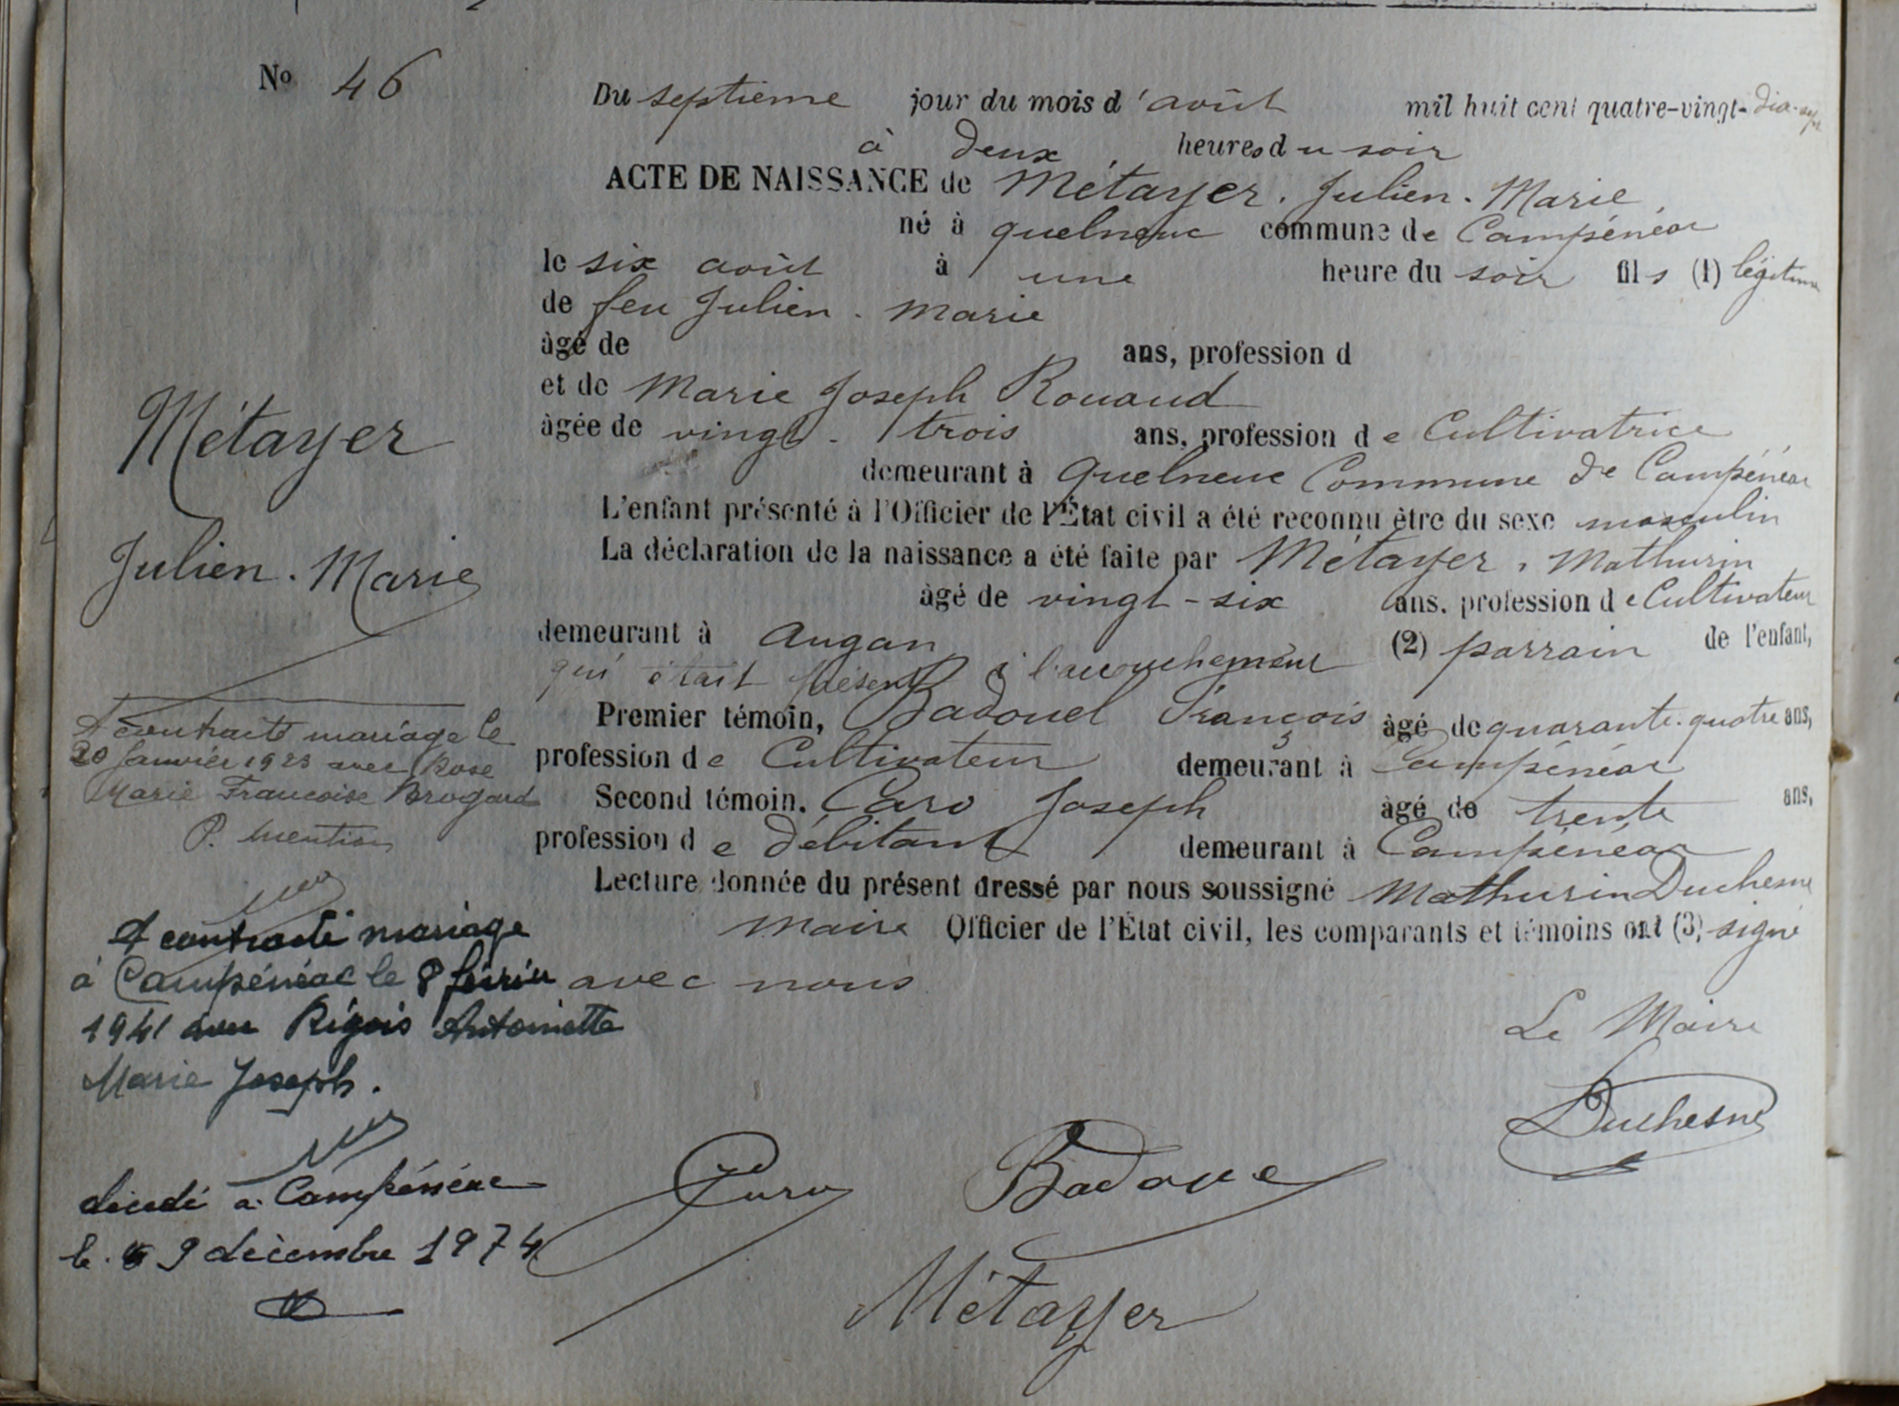 No 46
Du septième jour du mois d'août mil huit cent quatre-vingt-dix-sept
à deux heures du soir
ACTE DE NAISSANCE de Métayer. Julien. Marie
né à quelneuc commune de Campénéac
le six août à une heure du soir fils (1) légitime
de feu Julien. Marie
âgé de ans, profession d
et de Marie Joseph Rouaud
âgée de vingt-trois ans, profession de Cultivatrice
demeurant à quelneuc Commune de Campénéac
L'enfant présenté à l'Officier de l'État civil a été reconnu être du sexe masculin
La déclaration de la naissance a été faite par Métayer, Mathurin
âgé de vingt-six ans, profession de Cultivateur
demeurant à Augan (2) parrain de l'enfant,
qui était présent à l'accouchement
Premier témoin, Badouel François âgé de quarante-quatre ans,
profession de Cultivateur demeurant à Campénéac
Second témoin, Caro Joseph âgé de trente ans,
profession de Débitant demeurant à Campénéac
Lecture donnée du présent dressé par nous soussigné Mathurin Duchesne
Maire Officier de l'État civil, les comparants et témoins ont (3) signé
avec nous
Le Maire
Duchesne
Caro
Badoue
Métayer
Métayer
Julien. Marie
A contracté mariage le
20 Janvier 1923 avec Rose
Marie Françoise Brogard
P. Mention
A contracté mariage
à Campénéac le 8 février
1941 avec Rigois Antoinette
Marie Joseph.
décédé à Campénéac
le 9 décembre 1974